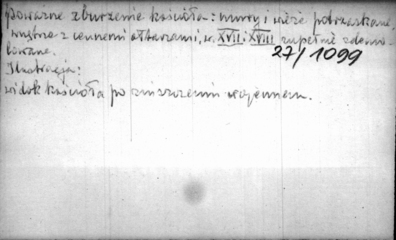 poważne zburzenie kościoła: mury i wieże potrzaskane,
wnętrze z cennemi ołtarzami, w. XVII i XVIII zupełnie zdemo-
lowane.
27/1099
Ilustracja:
widok kościoła po zniszczeniu wojennem.